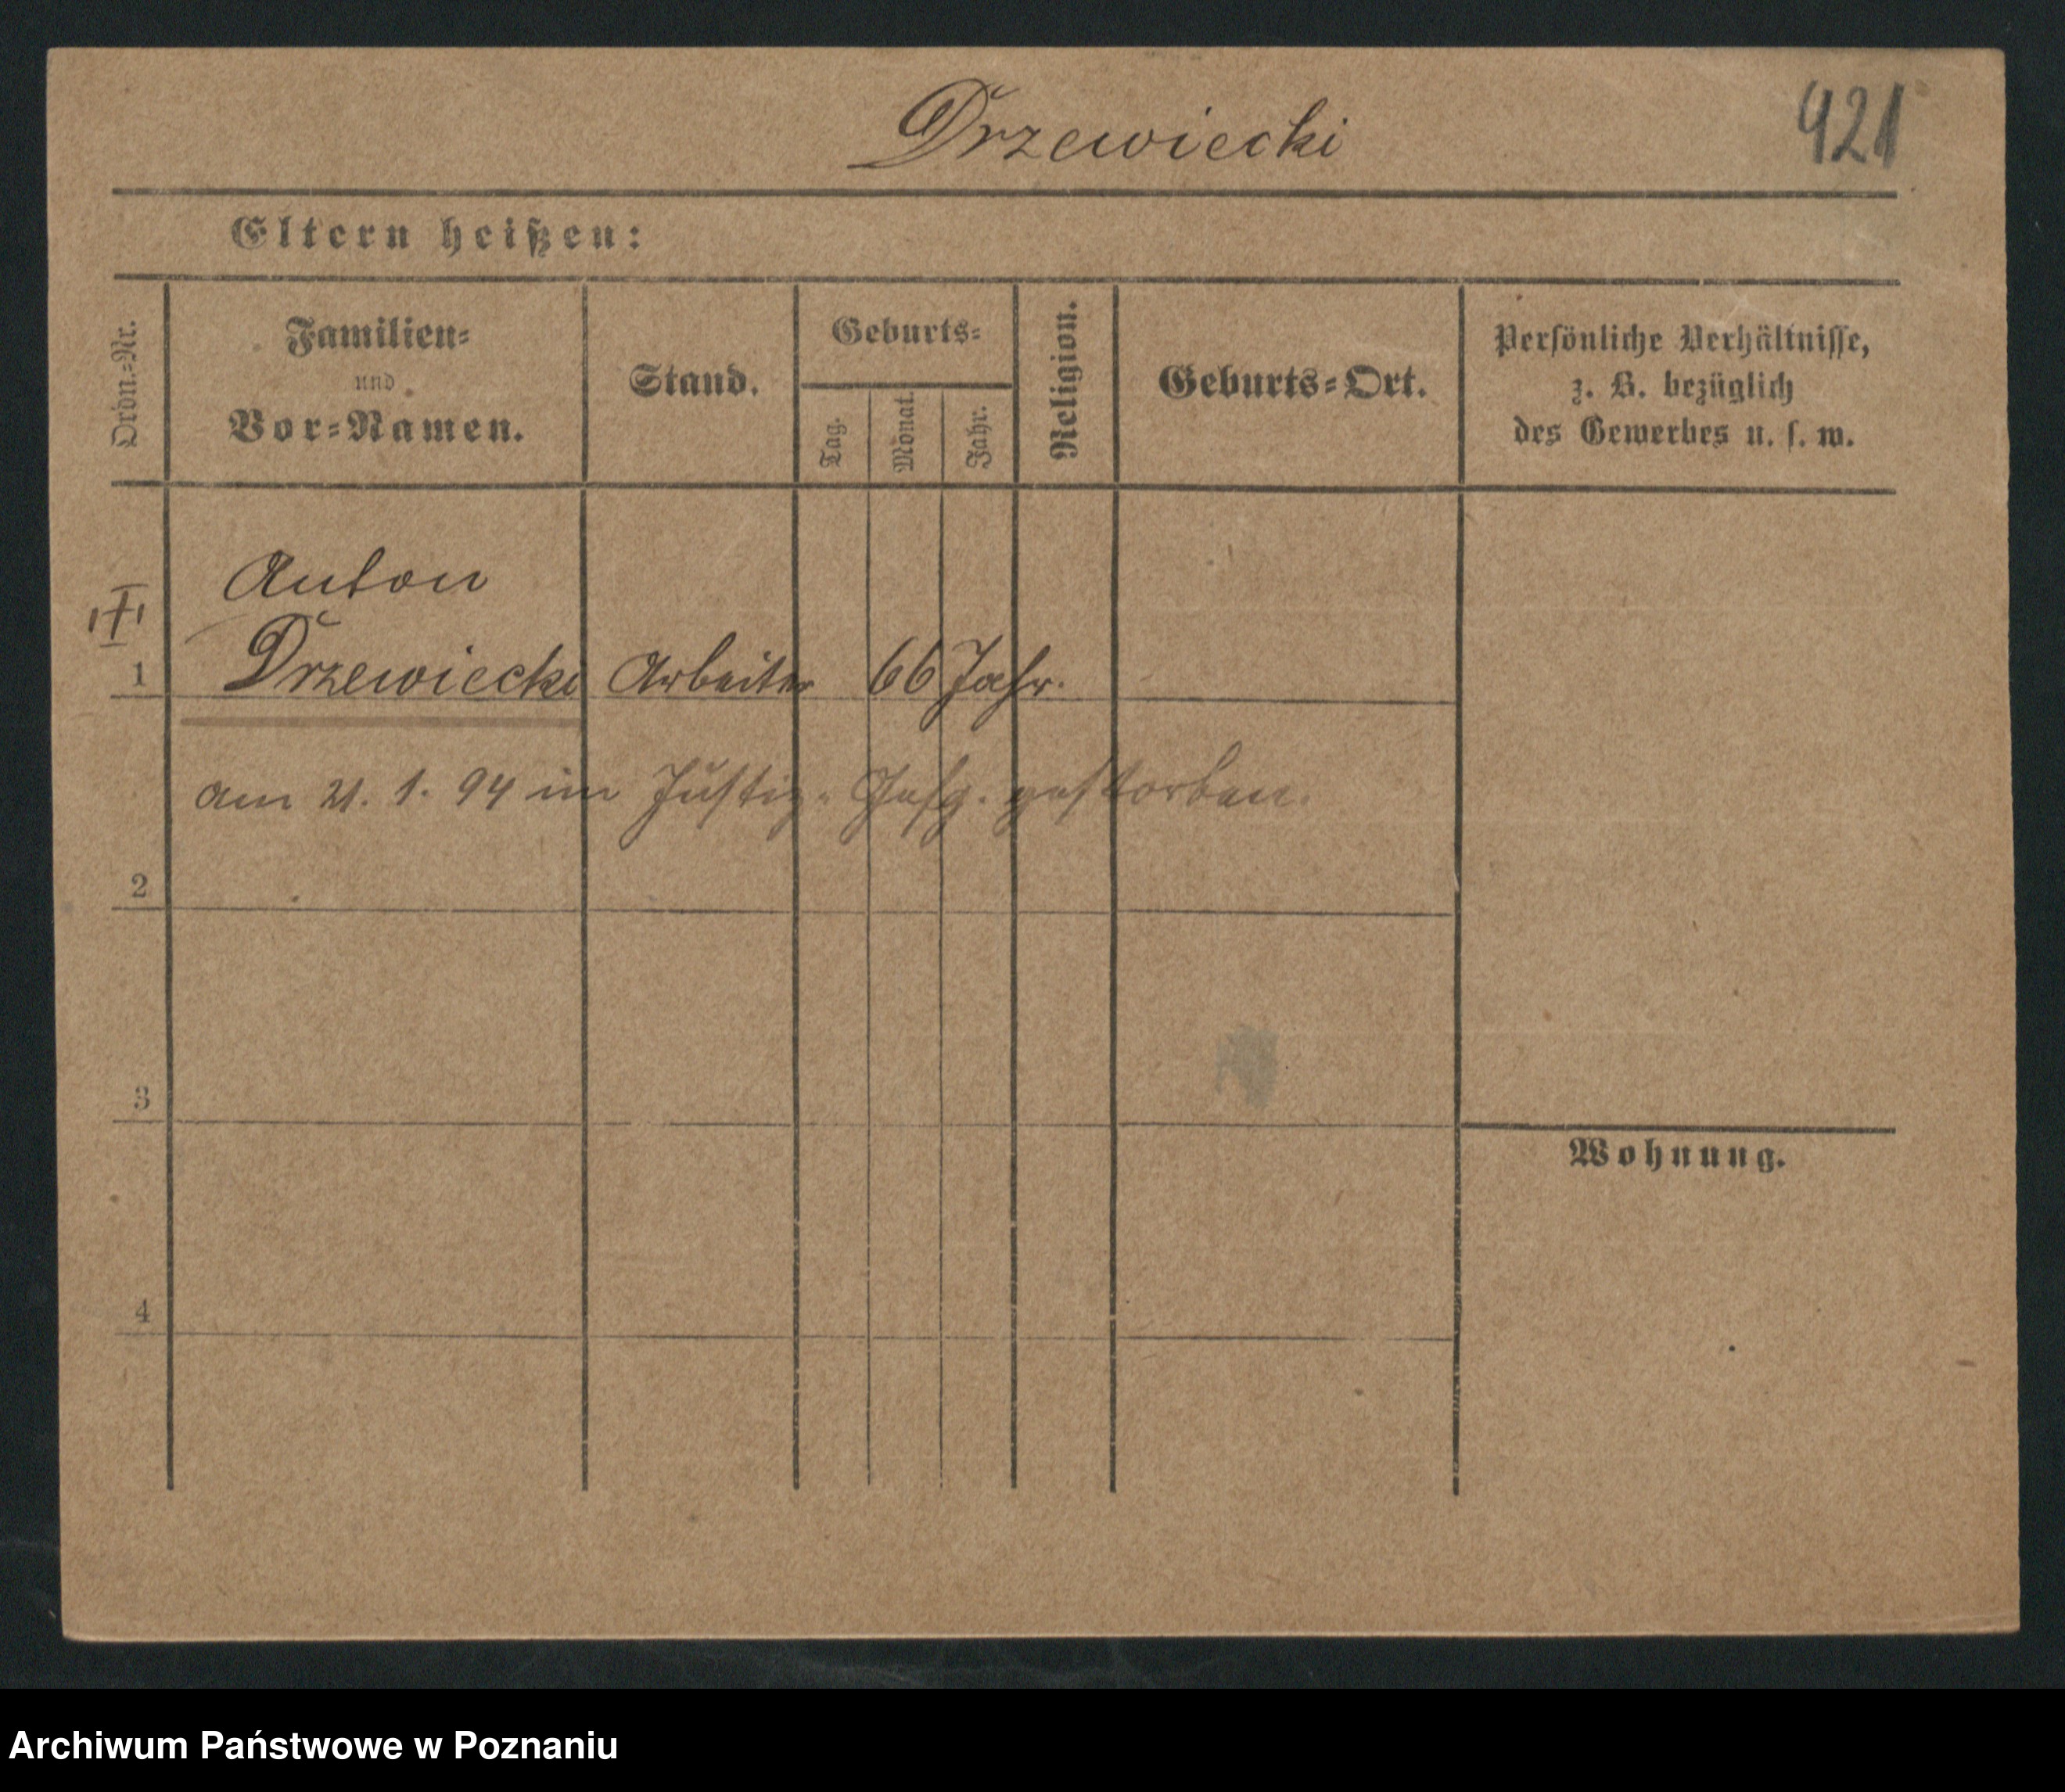 Drzewiecki
921
Eltern heißen:
Ordn.=Nr.
Familien=
und
Vor=Namen.
Stand.
Geburts=
Tag.
Monat.
Jahr.
Religion.
Geburts=Ort.
Persönliche Verhältnisse,
z. B. bezüglich
des Gewerbes u. s. w.
Anton
1 Drzewiecki Arbeiter 66 Jahr.
am 21. 1. 94 im Justiz-Gefg. gestorben.
2
3
Wohnung.
4
Archiwum Państwowe w Poznaniu